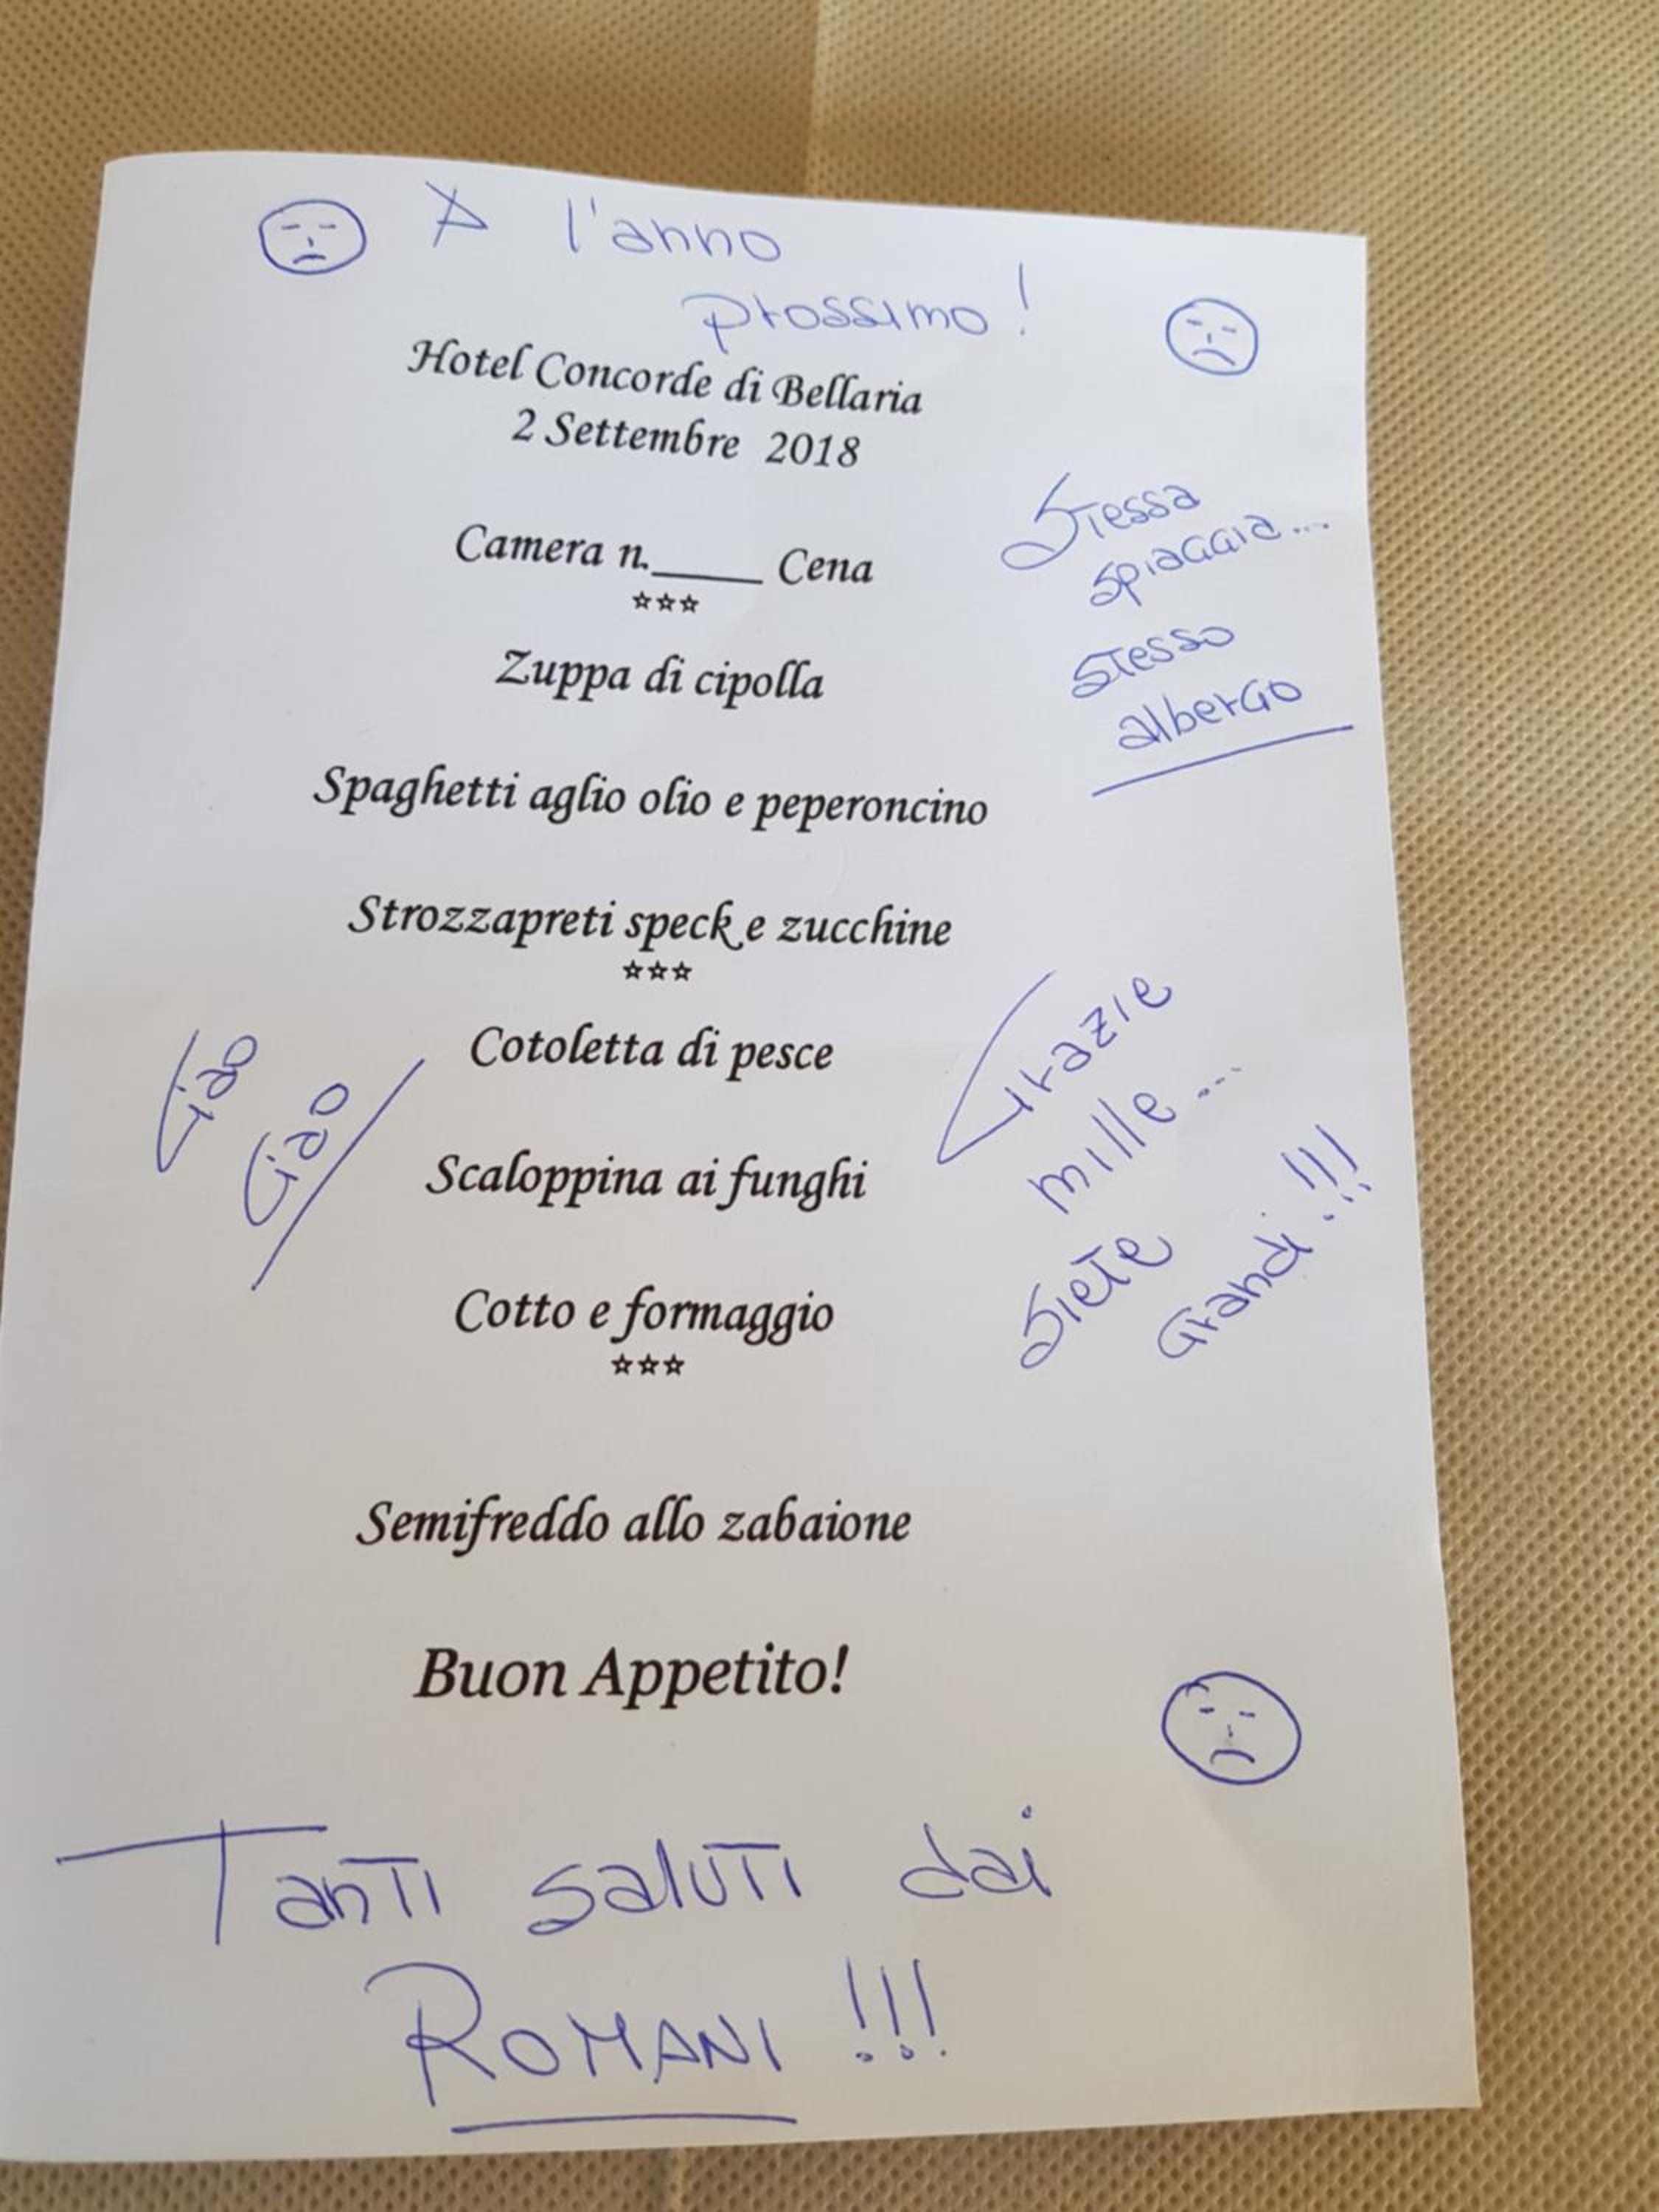 A l'anno
prossimo!
Hotel Concorde di Bellaria
2 Settembre 2018
Camera n.____ Cena
☆☆☆
Stessa
spiaggia...
stesso
albergo
Zuppa di cipolla
Spaghetti aglio olio e peperoncino
Strozzapreti speck e zucchine
☆☆☆
Ciao
Ciao
Cotoletta di pesce
Grazie
mille...
Siete
Grandi!!!
Scaloppina ai funghi
Cotto e formaggio
☆☆☆
Semifreddo allo zabaione
Buon Appetito!
Tanti saluti dai
ROMANI!!!